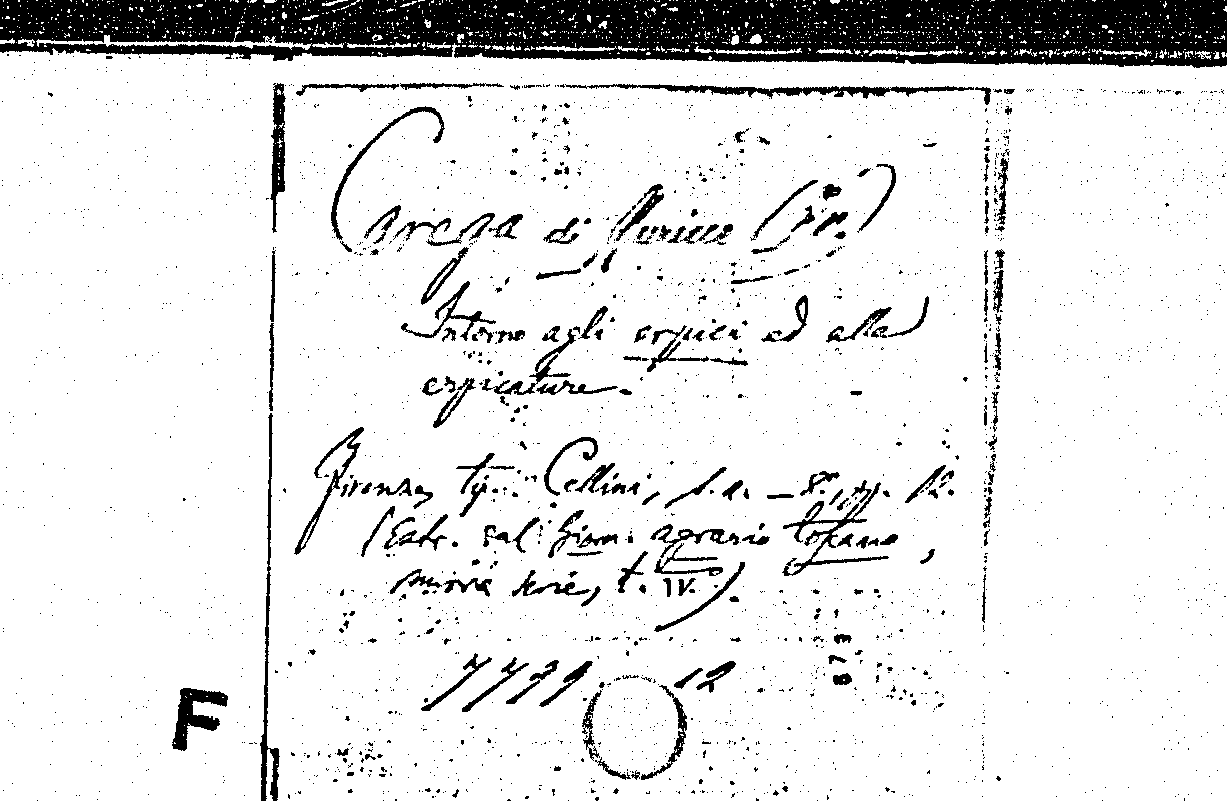 Crega di Muricce (Fr.)
Intorno agli erpici ed alle
erpicature.
Firenze, tip. Cellini, s. a. — 8°, pp. 12.
(Estr. dal Giorn. agrario toscano,
nuova serie, t. IV.°).
7739. 12
873
F